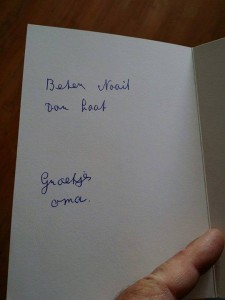 Beter Nooit
dan Laat
Groetjes
oma.